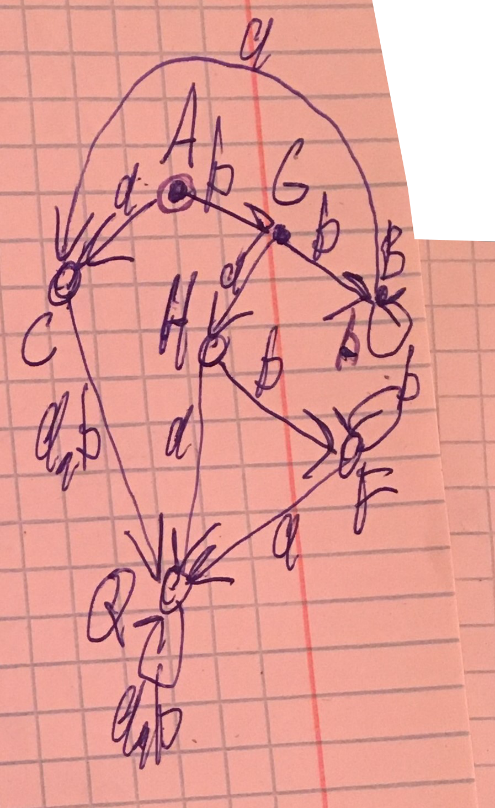 a
A
a
b
G
b
a
B
H
C
b
b
b
a,b
a
F
a
Q
a,b